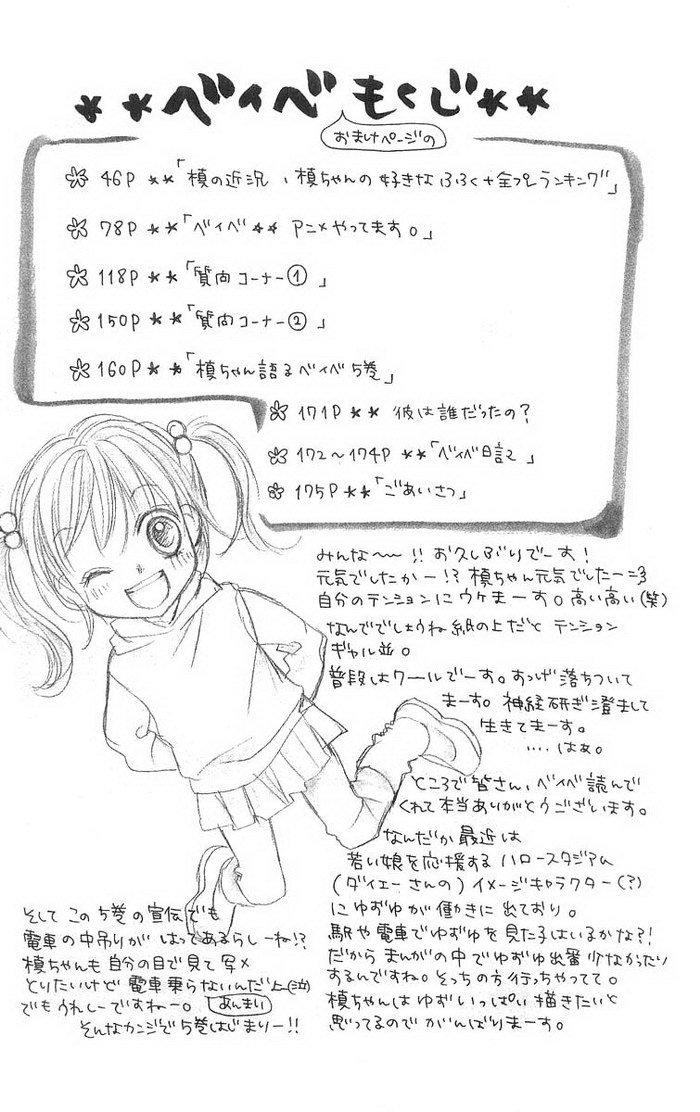 **ベイベもくじ**
おまけページの
46P **「槙の近況、槙ちゃんの好きなふく+全プレランキング」
78P **「ベイベ** アニメやってます。」
118P **「質問コーナー①」
150P **「質問コーナー②」
160P **「槙ちゃん語るベイベ5巻」
171P ** 彼は誰だったの?
172〜174P **「ベイベ日記」
175P **「ごあいさつ」
みんな〜〜!!お久しぶりでーす!
元気でしたかー!?槙ちゃん元気でしたー=3
自分のテンションにウケまーす。高い高い(笑)
なんででしょうね紙の上だと テンション
ギャル並。
普段はクールでーす。すっげ落ちついて
まーす。神経研ぎ澄まして
生きてまーす。
‥‥はぁ。
ところで皆さん、ベイベ読んで
くれて本当ありがとうございます。
なんだか最近は
若い娘を応援する ハロースタジアム
(ダイエーさんの)イメージキャラクター(?)
にゆずゆが働きに出ており。
駅や電車でゆずゆを見た子はいるかな?!
だから まんがの中でゆずゆ出番少なかったり
するんですね。そっちの方行っちゃってて。
槙ちゃんは ゆずいっぱい描きたいと
思ってるのでがんばりまーす。
そして この5巻の宣伝でも
電車の中吊りが はってあるらしーね!?
槙ちゃんも自分の目で見て 写メ
とりたいけど 電車乗らないんだ上(泣)
でもうれしーですねー。
あんまい
そんなカンジで5巻はじまりー!!